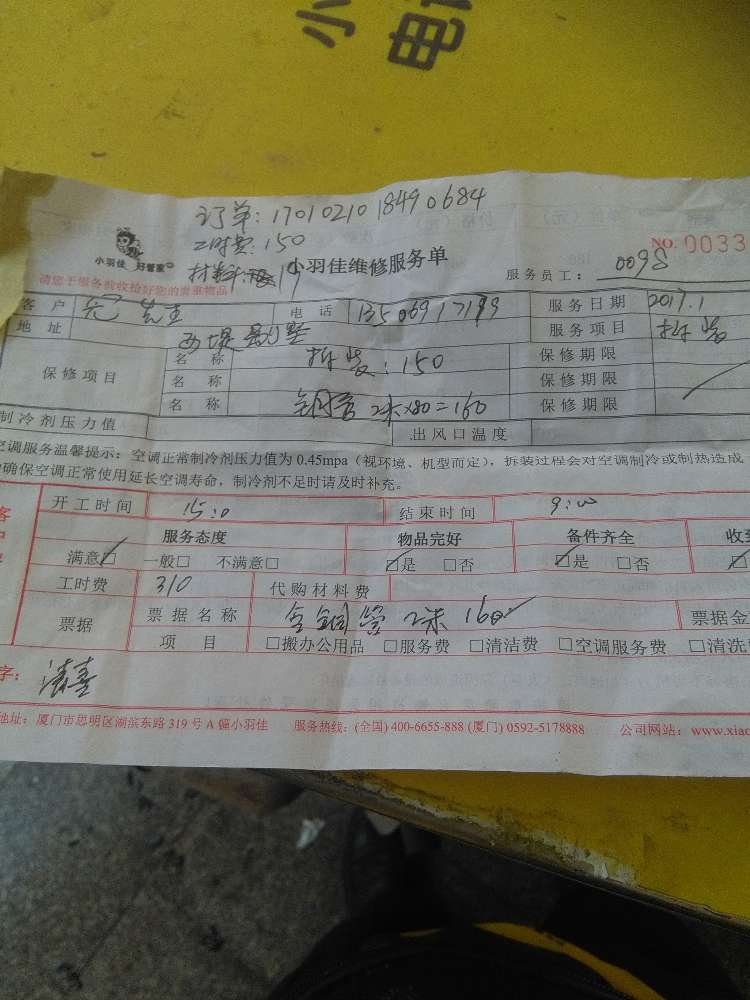 小
电
订单:1701021018490684
工时费:150
材料 19
小羽佳 好管家
小羽佳维修服务单
NO. 0033
请您于服务前收检好您的贵重物品
服务员工: 0098
客户 先生 电话 13506917199 服务日期 2017.1
地址 西堤别墅 服务项目 拆装
保修项目 名称 拆装:150 保修期限
名称 保修期限
名称 铜管2米×80=160 保修期限
制冷剂压力值 出风口温度
空调服务温馨提示:空调正常制冷剂压力值为 0.45mpa(视环境、机型而定),拆装过程会对空调制冷或制热造成
确保空调正常使用延长空调寿命,制冷剂不足时请及时补充。
开工时间 15:0 结束时间 9:00
服务态度 物品完好 备件齐全 收
满意☑ 一般□ 不满意□ ☑是 □否 ☑是 □否
工时费 310 代购材料费
票据 票据名称 含铜管2米160 票据金
项目 □搬办公用品 □服务费 □清洁费 □空调服务费 □清洗
字:
地址:厦门市思明区湖滨东路 319 号 A 幢小羽佳 服务热线:(全国) 400-6655-888 (厦门) 0592-5178888 公司网站:www.xiao